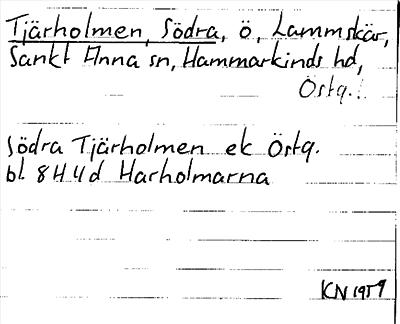 Tjärholmen, Södra, ö, Lammskär,
Sankt Anna sn, Hammarkinds hd,
Östg.
Södra Tjärholmen ek Östg.
bl. 8H4d Harholmarna
KN 1959